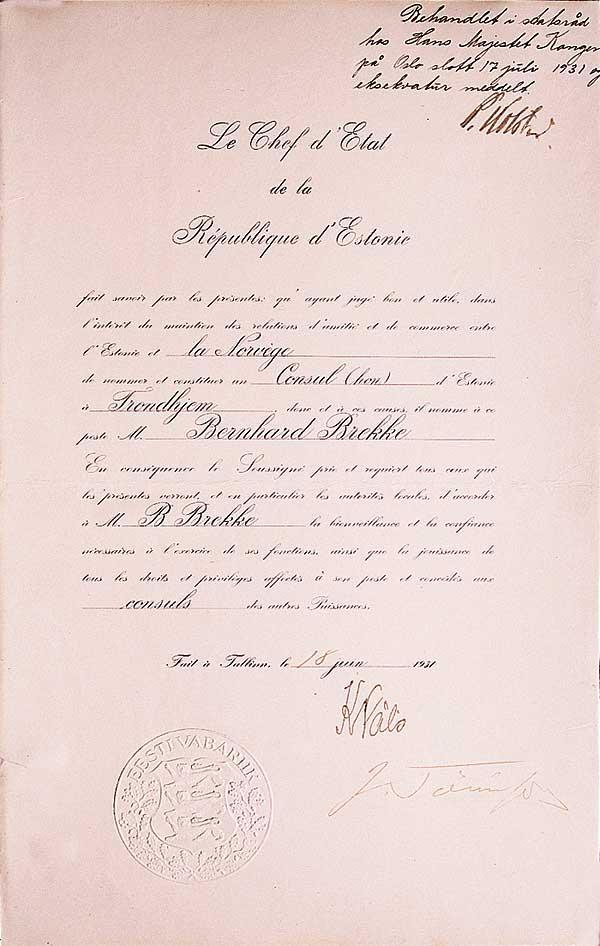 Behandlet i statsråd
hos Hans Majestet Kongen
på Oslo slott 17 juli 1931 og
eksekvatur meddelt.
Le Chef d'Etat
de la
République d'Estonie
fait savoir par les présentes: qu'ayant jugé bon et utile, dans
l'intérêt du maintien des relations d'amitié et de commerce entre
l'Estonie et la Norvège
de nommer et constituer un Consul (hon) d'Estonie
à Trondhjem donc et à ces causes, il nomme à ce
poste M. Bernhard Brekke
En conséquence le Soussigné prie et requiert tous ceux qui
les présentes verront, et en particulier les autorités locales, d'accorder
à M. B Brekke la bienveillance et la confiance
nécessaires à l'exercice de ses fonctions, ainsi que la jouissance de
tous les droits et privilèges affectés à son poste et concédés aux
consuls des autres Puissances.
Fait à Tallinn, le 18 juin 1931
K Päts
EESTI VABARIIK